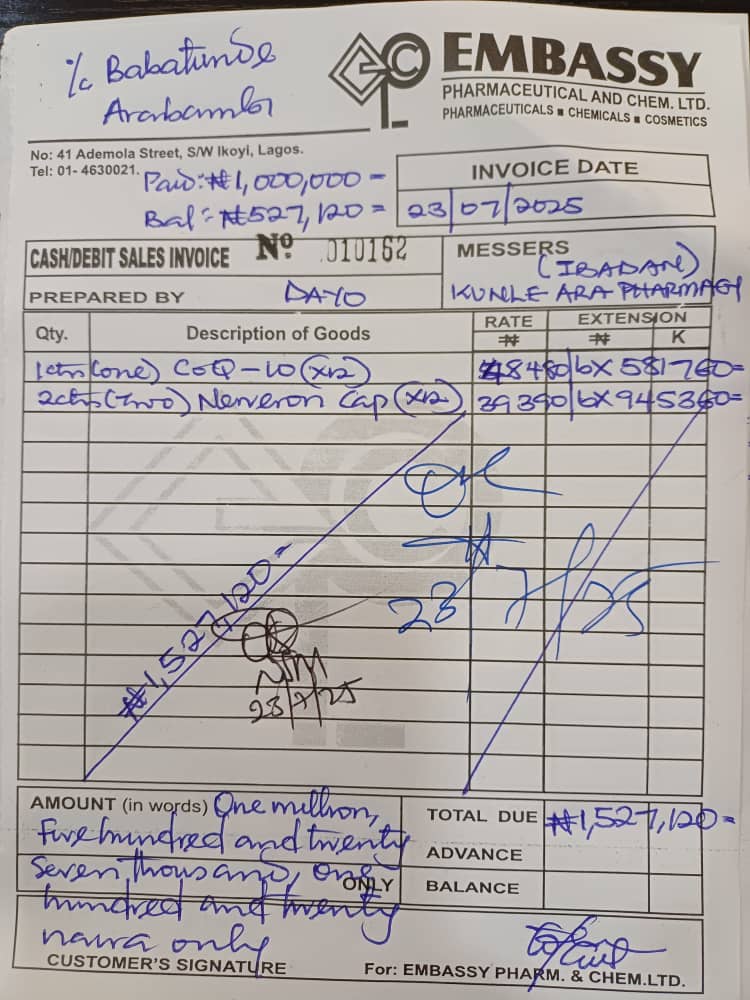 ℅ Babatunde
EMBASSY
PHARMACEUTICAL AND CHEM. LTD.
PHARMACEUTICALS ■ CHEMICALS ■ COSMETICS
No: 41 Ademola Street, S/W Ikoyi, Lagos.
Tel: 01- 4630021.
Paid: ₦1,000,000=
Bal: ₦527,120=
INVOICE DATE
23/07/2025
CASH/DEBIT SALES INVOICE Nº. 010162
MESSERS
(IBADAN)
KUNLE ARA PHARMACY
PREPARED BY DAYO
Qty. Description of Goods RATE ₦ EXTENSION ₦ K
1ctn (one) COQ-10 (x12) 48480 6X 581760=
2ctns (Two) Nerveron Cap (x12) 39390 6X 945360=
23/7/25
₦1,527,120=
23/7/25
AMOUNT (in words) One million,
Five hundred and twenty
Seven thousand, one
hundred and twenty
naira only
ONLY
TOTAL DUE ₦1,527,120=
ADVANCE
BALANCE
CUSTOMER'S SIGNATURE
For: EMBASSY PHARM. & CHEM.LTD.